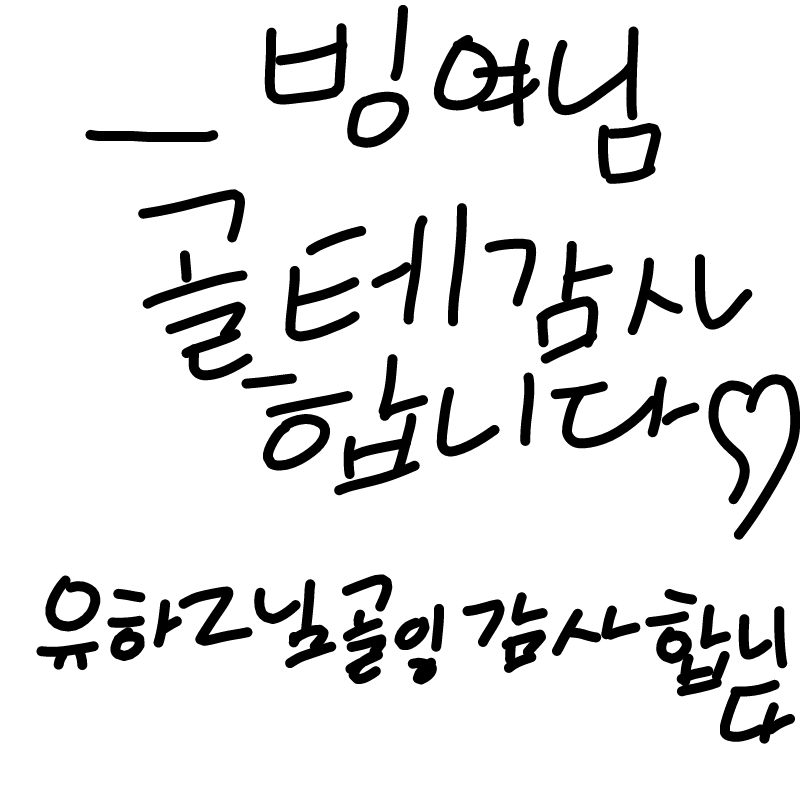 _ 빙여님
골테감사
합니다♡
유하2님골잉 감사합니
다